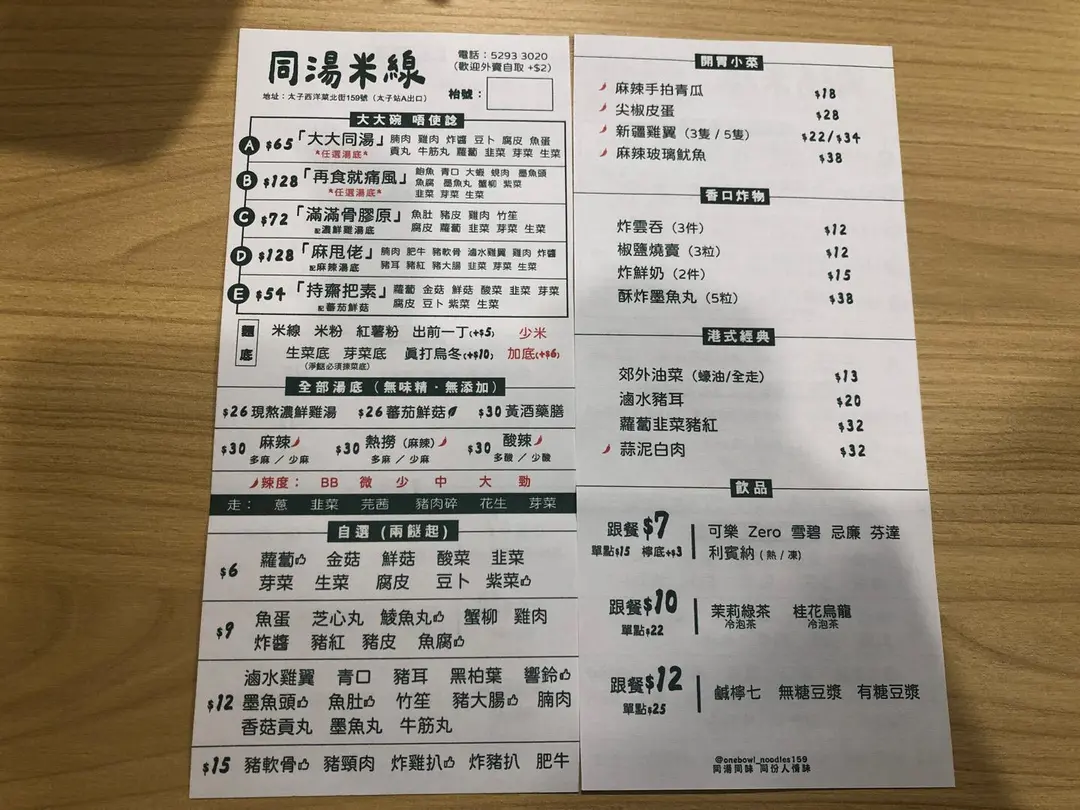 同湯米線
電話：5293 3020
(歡迎外賣自取 +$2)
地址：太子西洋菜北街159號（太子站A出口）
枱號：
大大碗 唔使諗
A $65 「大大同湯」 腩肉 雞肉 炸醬 豆卜 腐皮 魚蛋
*任選湯底* 貢丸 牛筋丸 蘿蔔 韭菜 芽菜 生菜
B $128 「再食就痛風」 鮑魚 青口 大蝦 蜆肉 墨魚頭
魚腐 墨魚丸 蟹柳 紫菜
*任選湯底* 韭菜 芽菜 生菜
C $72 「滿滿骨膠原」 魚肚 豬皮 雞肉 竹笙
配濃鮮雞湯底 腐皮 蘿蔔 韭菜 芽菜 生菜
D $128 「麻甩佬」 腩肉 肥牛 豬軟骨 滷水雞翼 雞肉 炸醬
配麻辣湯底 豬耳 豬紅 豬大腸 韭菜 芽菜 生菜
E $54 「持齋把素」 蘿蔔 金菇 鮮菇 酸菜 韭菜 芽菜
配蕃茄鮮菇 腐皮 豆卜 紫菜 生菜
麵底 米線 米粉 紅薯粉 出前一丁(+$5) 少米
生菜底 芽菜底 真打烏冬(+$10) 加底(+$6)
(淨餸必須揀菜底)
全部湯底（無味精．無添加）
$26 現熬濃鮮雞湯 $26 蕃茄鮮菇 $30 黃酒藥膳
$30 麻辣 $30 熱撈（麻辣） $30 酸辣
多麻 / 少麻 多麻 / 少麻 多酸 / 少酸
辣度： BB 微 少 中 大 勁
走： 蔥 韭菜 芫茜 豬肉碎 花生 芽菜
自選 (兩餸起)
$6 蘿蔔 金菇 鮮菇 酸菜 韭菜
芽菜 生菜 腐皮 豆卜 紫菜
$9 魚蛋 芝心丸 鯪魚丸 蟹柳 雞肉
炸醬 豬紅 豬皮 魚腐
滷水雞翼 青口 豬耳 黑柏葉 響鈴
$12 墨魚頭 魚肚 竹笙 豬大腸 腩肉
香菇貢丸 墨魚丸 牛筋丸
$15 豬軟骨 豬頸肉 炸雞扒 炸豬扒 肥牛
開胃小菜
麻辣手拍青瓜 $18
尖椒皮蛋 $28
新疆雞翼（3隻 / 5隻） $22/$34
麻辣玻璃魷魚 $38
香口炸物
炸雲吞（3件） $12
椒鹽燒賣（3粒） $12
炸鮮奶（2件） $15
酥炸墨魚丸（5粒） $38
港式經典
郊外油菜（蠔油/全走） $13
滷水豬耳 $20
蘿蔔韭菜豬紅 $32
蒜泥白肉 $32
飲品
跟餐$7 可樂 Zero 雪碧 忌廉 芬達
單點$15 檸底+$3 利賓納（熱 / 凍）
跟餐$10 茉莉綠茶 桂花烏龍
單點$22 冷泡茶 冷泡茶
跟餐$12 鹹檸七 無糖豆漿 有糖豆漿
單點$25
@onebowl_noodles159
同湯同味 同份人情味